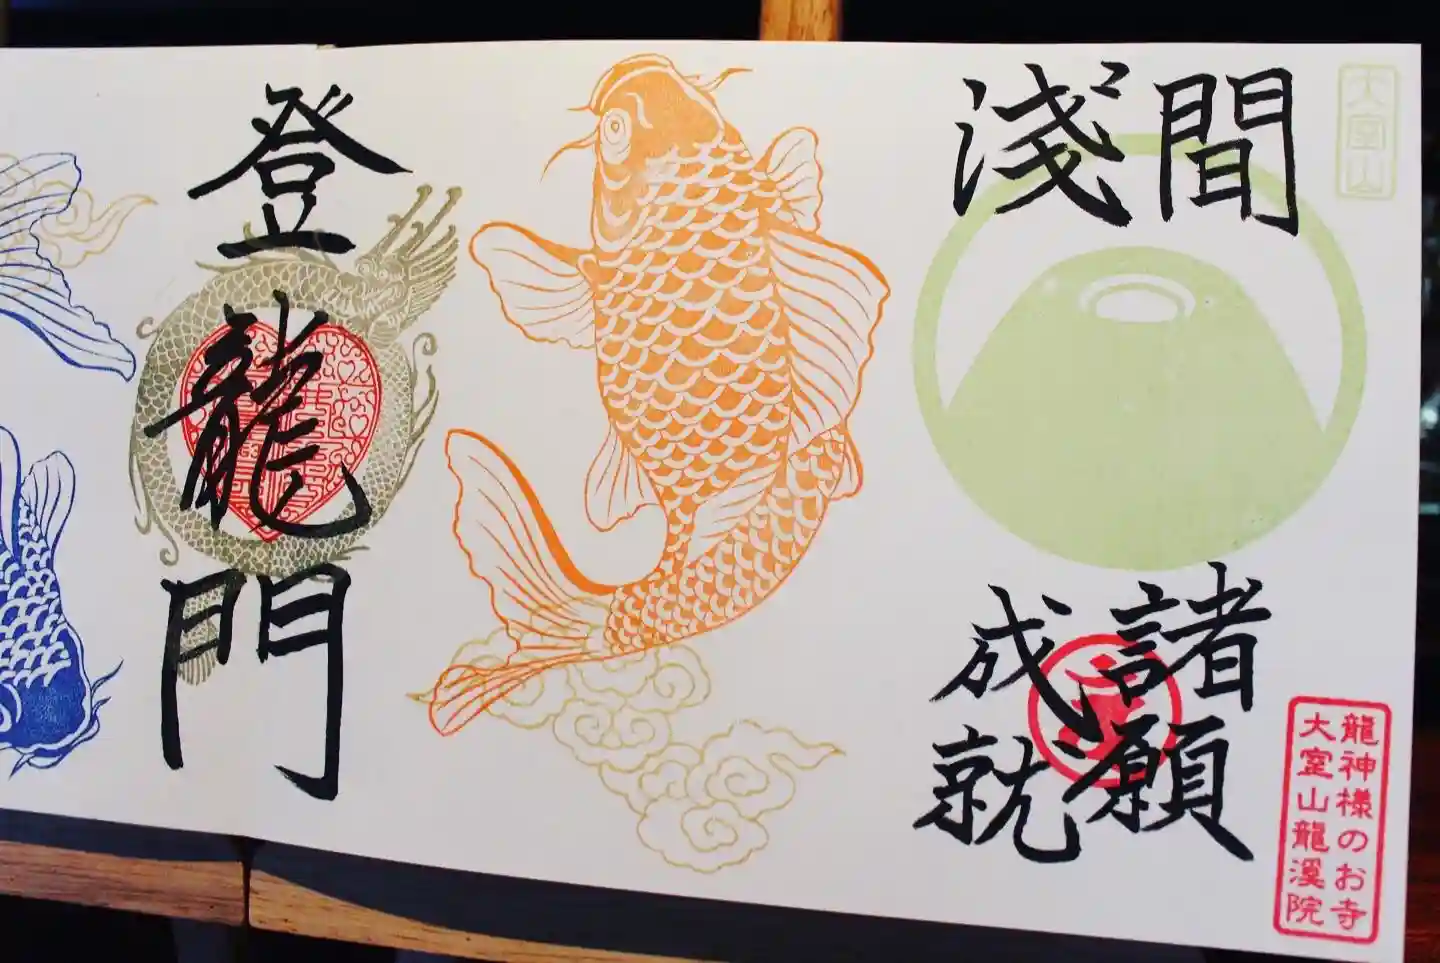 大室山
間
淺
諸願
成就
龍神様のお寺
大室山龍溪院
登龍門